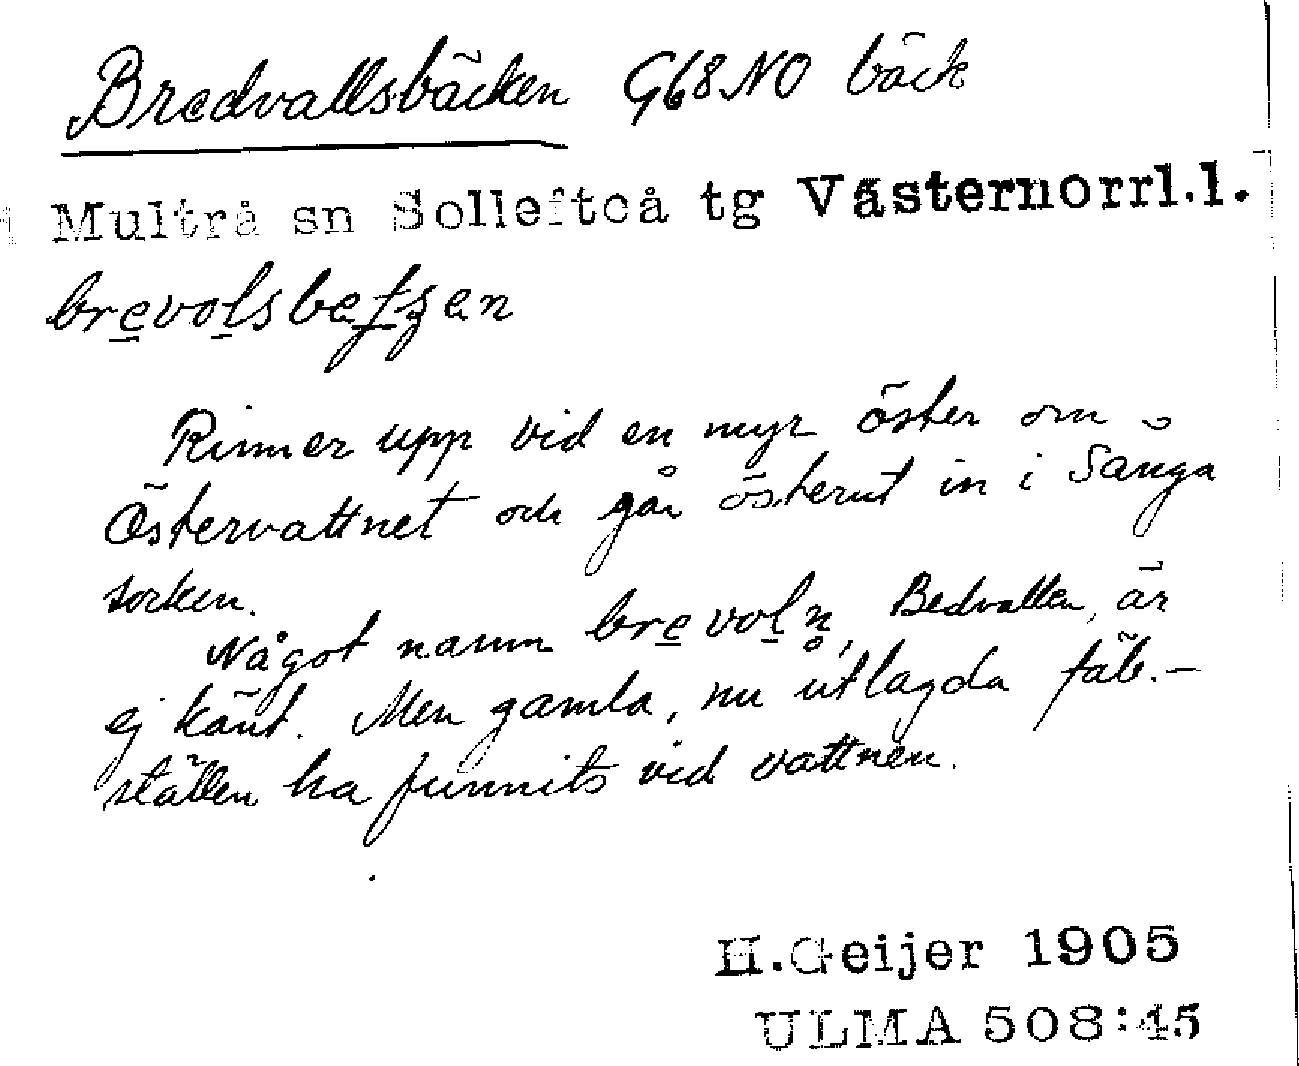 Bredvallsbäcken G68NO bäck
Multrå sn Sollefteå tg Västernorrl.l.
brevolsbefzen
Rinner upp vid en myr öster om
Östervattnet och går österut in i Sånga
socken.
Något namn brevoln, Bedvallen, är
ej känt. Men gamla, nu utlagda fäb.-
ställen ha funnits vid vattnen.
H.Geijer 1905
ULMA 508:45